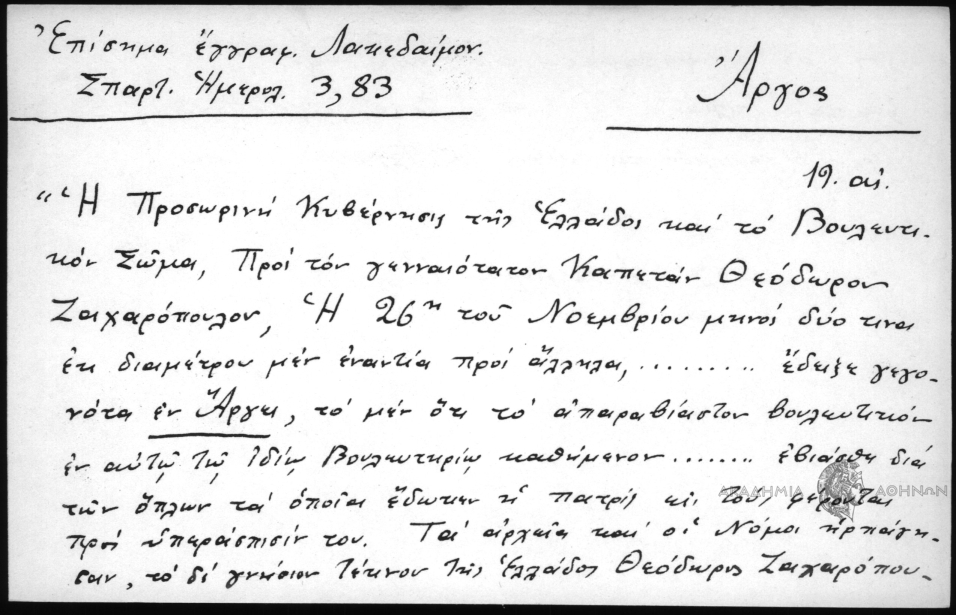 Ἐπίσημα ἔγγραφ. Λακεδαίμον.
Σπαρτ. Ἡμερολ. 3, 83
Ἄργος
19. αἰ.
"Ἡ Προσωρινή Κυβέρνησις τῆς Ἑλλάδος καί τό Βουλευτι-
κόν Σῶμα, Πρός τόν γενναιότατον Καπετάν Θεόδωρον
Ζαχαρόπουλον, Ἡ 26η τοῦ Νοεμβρίου μηνός δύο τινα
ἐκ διαμέτρου μέν ἐναντία πρός ἄλληλα, ......... ἔδειξε γεγο-
νότα ἐν Ἄργει, τό μέν ὅτι τό ἀπαραβίαστον βουλευτικόν
ἐν αὐτῷ τῷ ἰδίῳ Βουλευτηρίῳ καθήμενον ........ ἐβιάσθη διά
τῶν ὅπλων τά ὁποῖα ἔδωκεν ἡ πατρίς εἰς τούς φέροντας
πρός ὑπεράσπισίν του. Τά ἀρχεῖα καί οἱ Νόμοι ἡρπάγη-
σαν, τό δέ γνήσιον τέκνον τῆς Ἑλλάδος Θεόδωρος Ζαχαρόπου-
ΑΚΑΔΗΜΙΑ ΑΘΗΝΩΝ